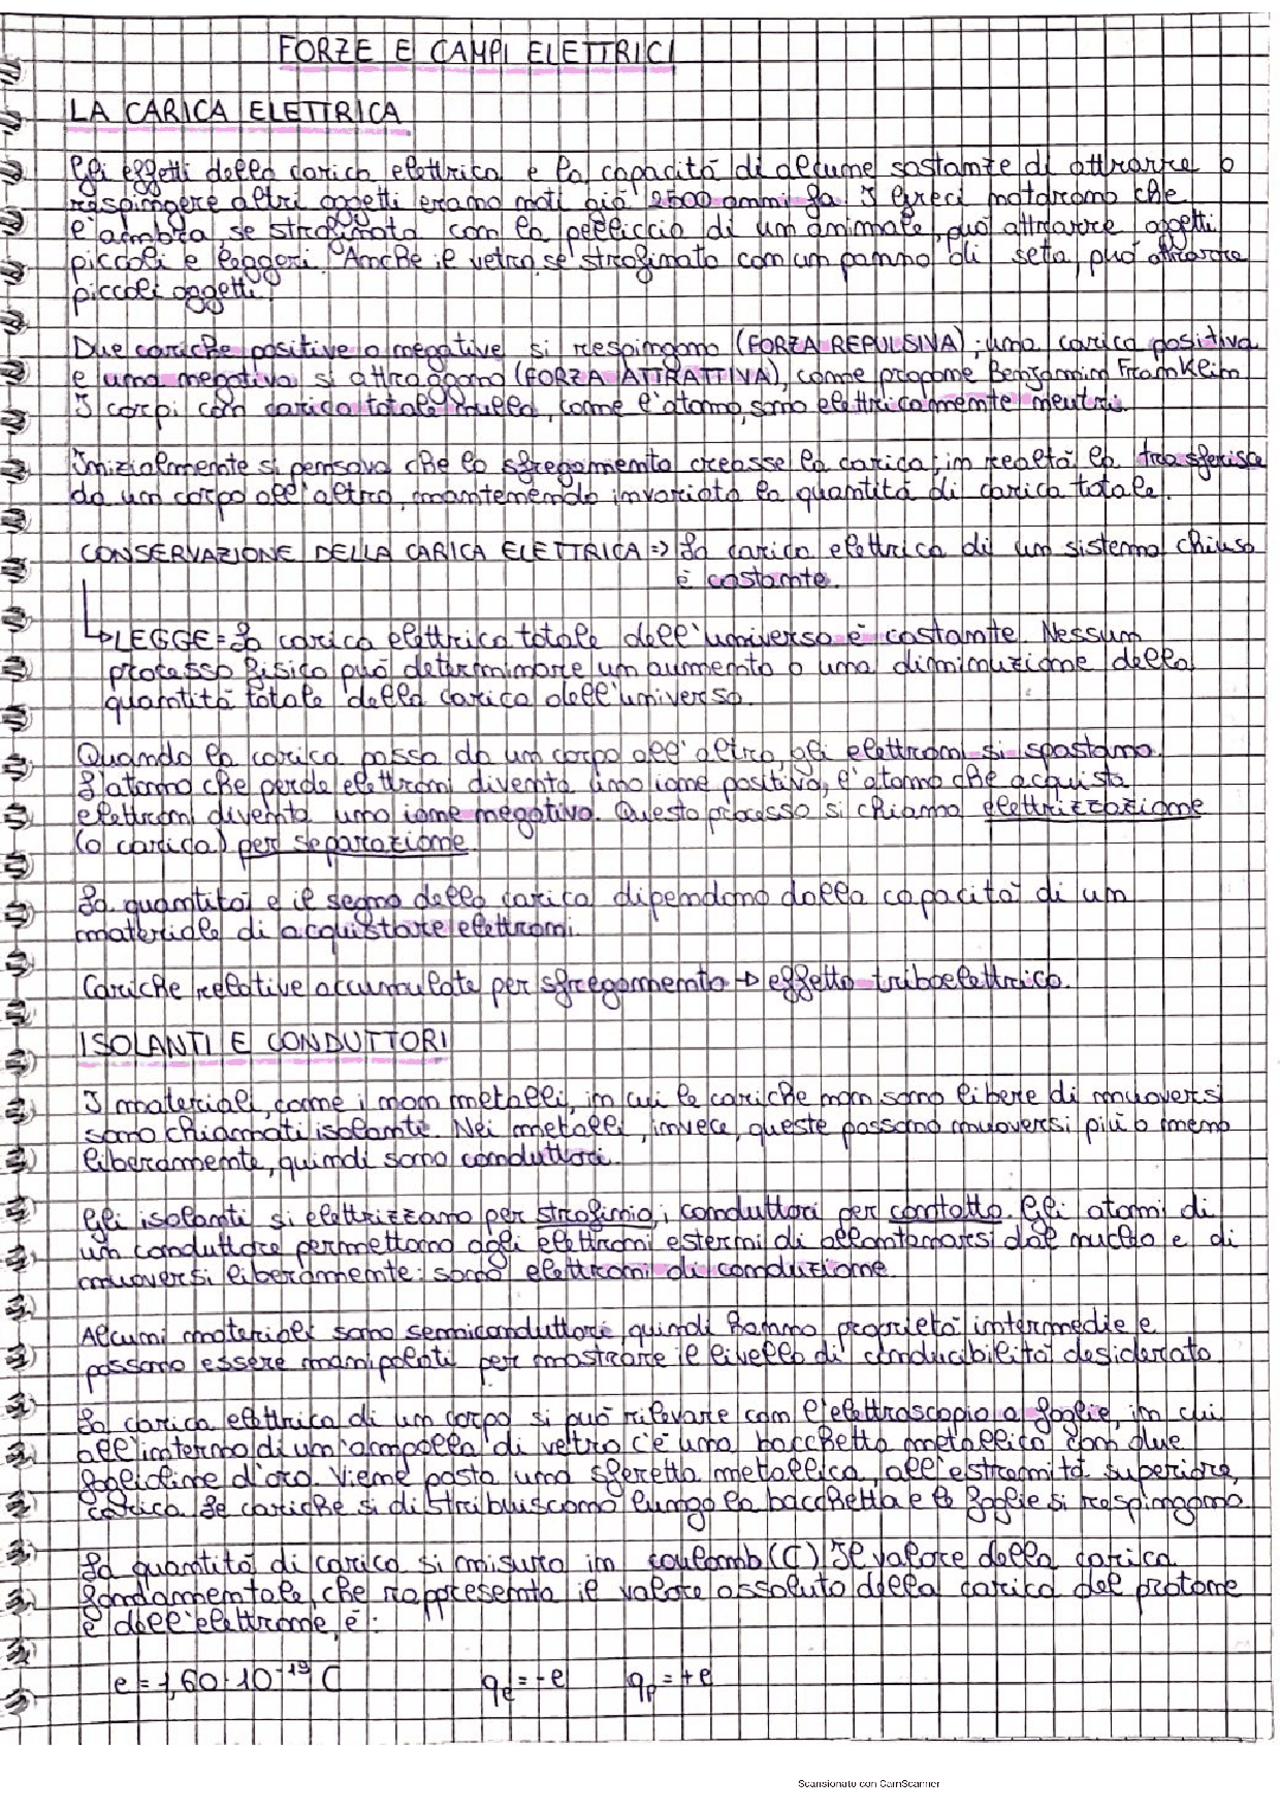 FORZE E CAMPI ELETTRICI
LA CARICA ELETTRICA
Gli effetti della carica elettrica e la capacità di alcune sostanze di attrarre o
respingere altri oggetti erano noti già 2500 anni fa. I Greci notarono che
l'ambra, se strofinata con la pelliccia di un animale, può attrarre oggetti
piccoli e leggeri. Anche il vetro, se strofinato con un panno di seta, può attrarre
piccoli oggetti.
Due cariche positive o negative si respingono (FORZA REPULSIVA); una carica positiva
e una negativa si attraggono (FORZA ATTRATTIVA), come propone Benjamin Franklin
I corpi con carica totale nulla, come l'atomo, sono elettricamente neutri.
Inizialmente si pensava che lo sfregamento creasse la carica; in realtà la trasferisce
da un corpo all'altro, mantenendo invariata la quantità di carica totale.
CONSERVAZIONE DELLA CARICA ELETTRICA => La carica elettrica di un sistema chiuso
è costante.
↳ LEGGE = La carica elettrica totale dell'universo è costante. Nessun
processo fisico può determinare un aumento o una diminuzione della
quantità totale della carica dell'universo.
Quando la carica passa da un corpo all'altro, gli elettroni si spostano.
L'atomo che perde elettroni diventa uno ione positivo, l'atomo che acquista
elettroni diventa uno ione negativo. Questo processo si chiama elettrizzazione
(o carica) per separazione.
La quantità e il segno della carica dipendono dalla capacità di un
materiale di acquistare elettroni.
Cariche relative accumulate per sfregamento → effetto triboelettrico.
ISOLANTI E CONDUTTORI
I materiali, come i non metalli, in cui le cariche non sono libere di muoversi
sono chiamati isolanti. Nei metalli, invece, queste possono muoversi più o meno
liberamente, quindi sono conduttori.
Gli isolanti si elettrizzano per strofinio, i conduttori per contatto. Gli atomi di
un conduttore permettono agli elettroni esterni di allontanarsi dal nucleo e di
muoversi liberamente: sono elettroni di conduzione.
Alcuni materiali sono semiconduttori, quindi hanno proprietà intermedie e
possono essere manipolati per mostrare il livello di conducibilità desiderato
La carica elettrica di un corpo si può rilevare con l'elettroscopio a foglie, in cui
all'interno di un'ampolla di vetro c'è una bacchetta metallica con due
foglioline d'oro. Viene posta una sferetta metallica, all'estremità superiore,
carica. Le cariche si distribuiscono lungo la bacchetta e le foglie si respingono.
La quantità di carica si misura in coulomb (C). Il valore della carica
fondamentale, che rappresenta il valore assoluto della carica del protone
e dell'elettrone, è:
e = 1,60 · 10⁻¹⁹ C qₑ = -e qₚ = +e
Scansionato con CamScanner